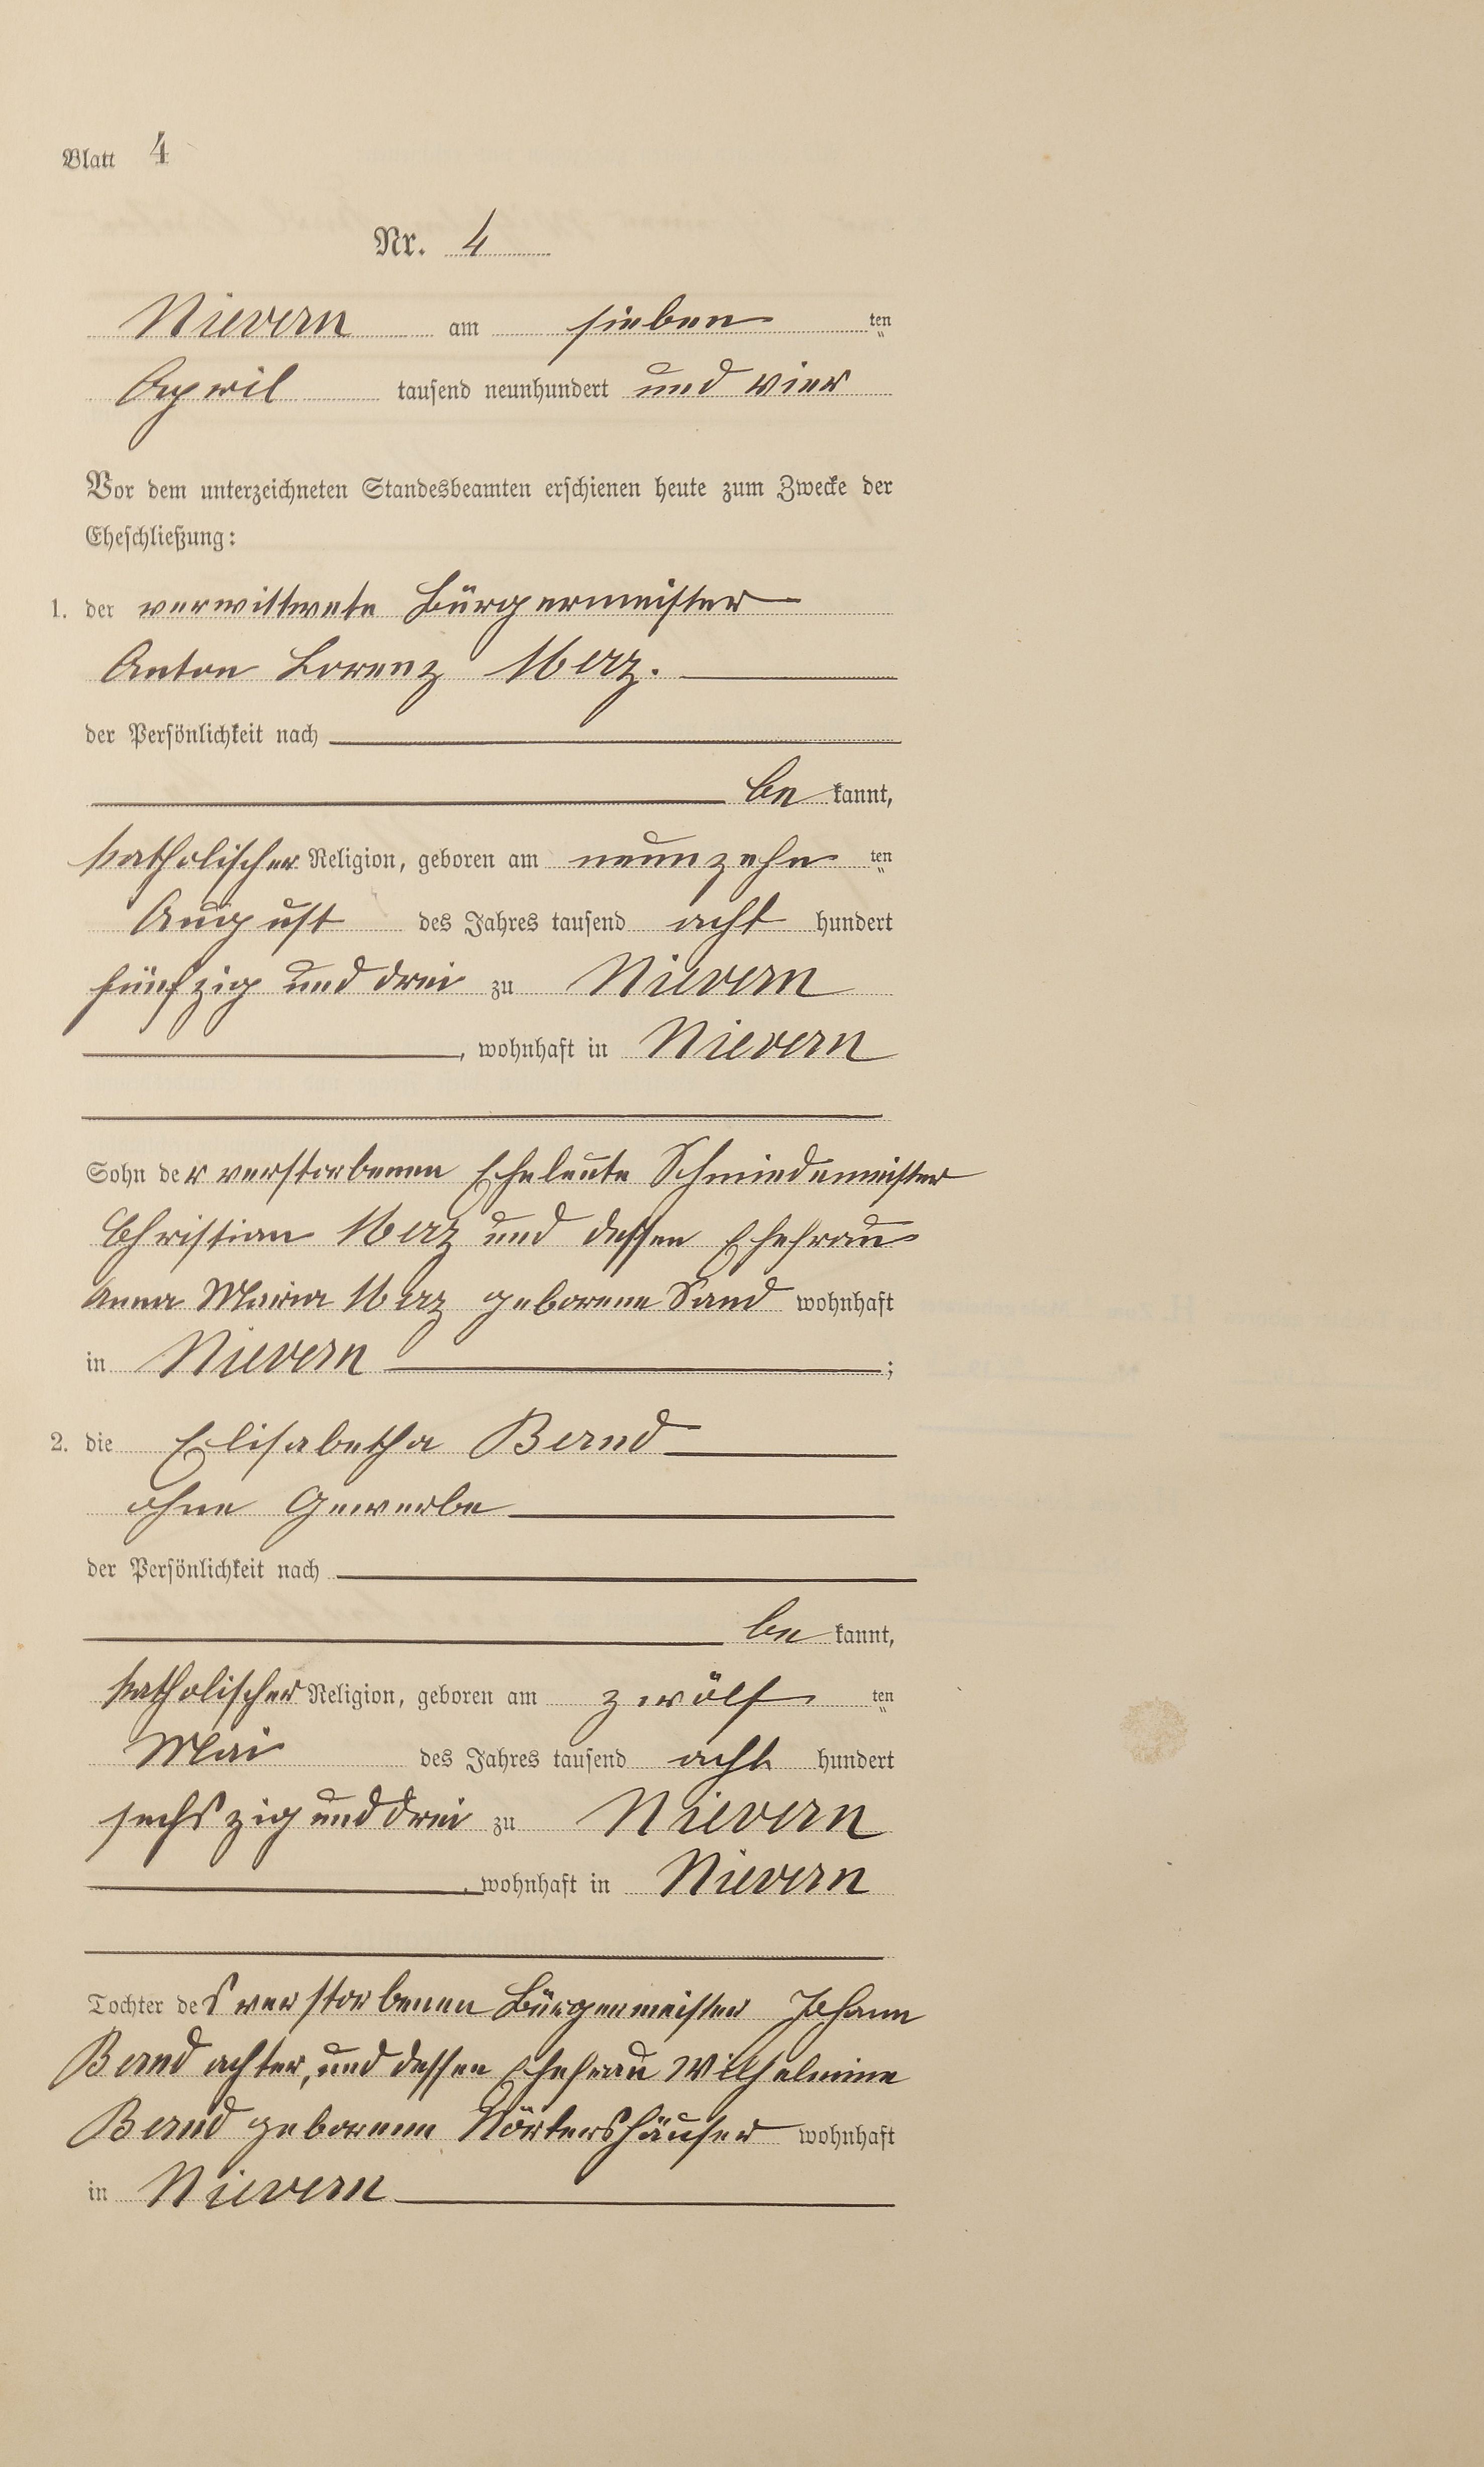 Blatt 4
Nr. 4
Nievern am sieben ten
April tausend neunhundert und vier
Vor dem unterzeichneten Standesbeamten erschienen heute zum Zwecke der
Eheschließung:
1. der verwittwete Bürgermeister
Anton Lorenz Merz.
der Persönlichkeit nach
be kannt,
katholischer Religion, geboren am neunzehn ten
August des Jahres tausend acht hundert
fünfzig und drei zu Nievern
, wohnhaft in Nievern
Sohn der verstorbenen Eheleute Schmiedemeister
Christian Merz und dessen Ehefrau
Anna Maria Merz geborene Sand wohnhaft
in Nievern ;
2. die Elisabetha Bernd
ohne Gewerbe
der Persönlichkeit nach
be kannt,
katholischer Religion, geboren am zwölf ten
Mai des Jahres tausend acht hundert
sechszig und drei zu Nievern
, wohnhaft in Nievern
Tochter des verstorbenen Bürgermeister Johann
Bernd achter, und dessen Ehefrau Wilhelmine
Bernd geborenen Nörtershäuser wohnhaft
in Nievern